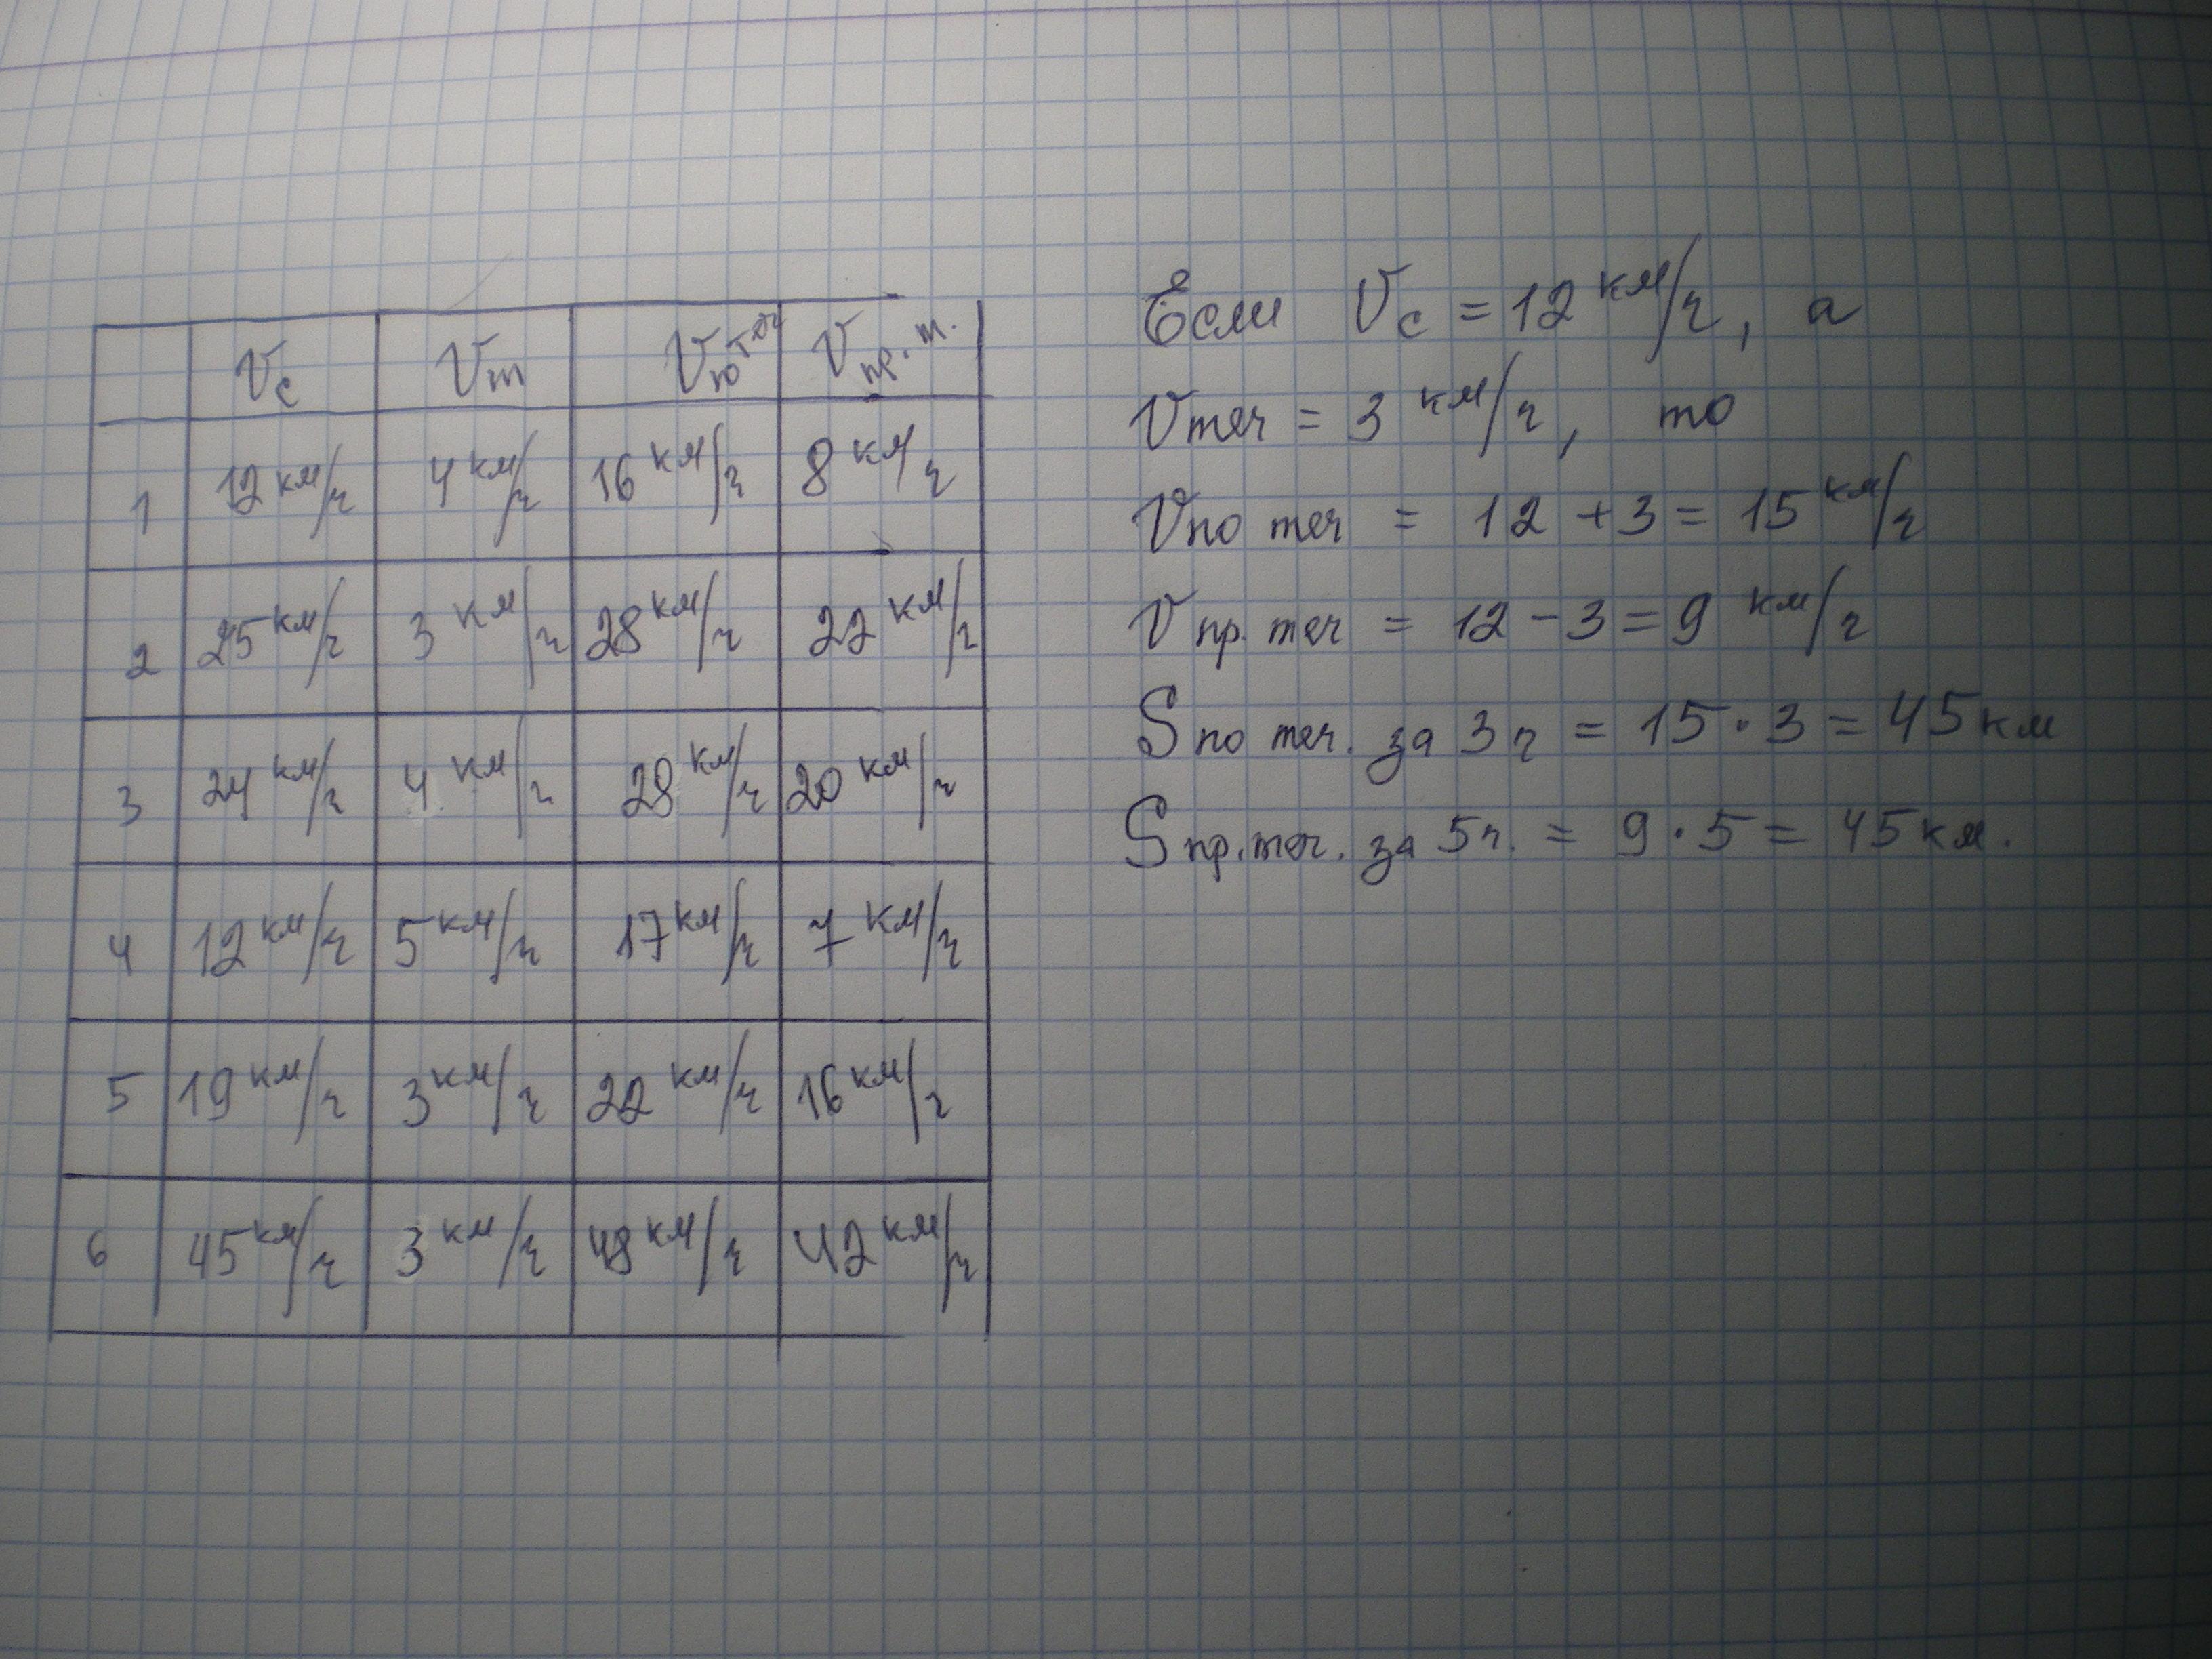 Vс Vт Vпо теч Vпр. т.
1 12 км/ч 4 км/ч 16 км/ч 8 км/ч
2 25 км/ч 3 км/ч 28 км/ч 22 км/ч
3 24 км/ч 4 км/ч 28 км/ч 20 км/ч
4 12 км/ч 5 км/ч 17 км/ч 7 км/ч
5 19 км/ч 3 км/ч 22 км/ч 16 км/ч
6 45 км/ч 3 км/ч 48 км/ч 42 км/ч
Если Vс = 12 км/ч, а
Vтеч = 3 км/ч, то
Vпо теч = 12 + 3 = 15 км/ч
Vпр. теч = 12 - 3 = 9 км/ч
Sпо теч. за 3 ч = 15 · 3 = 45 км
Sпр. теч. за 5 ч. = 9 · 5 = 45 км.